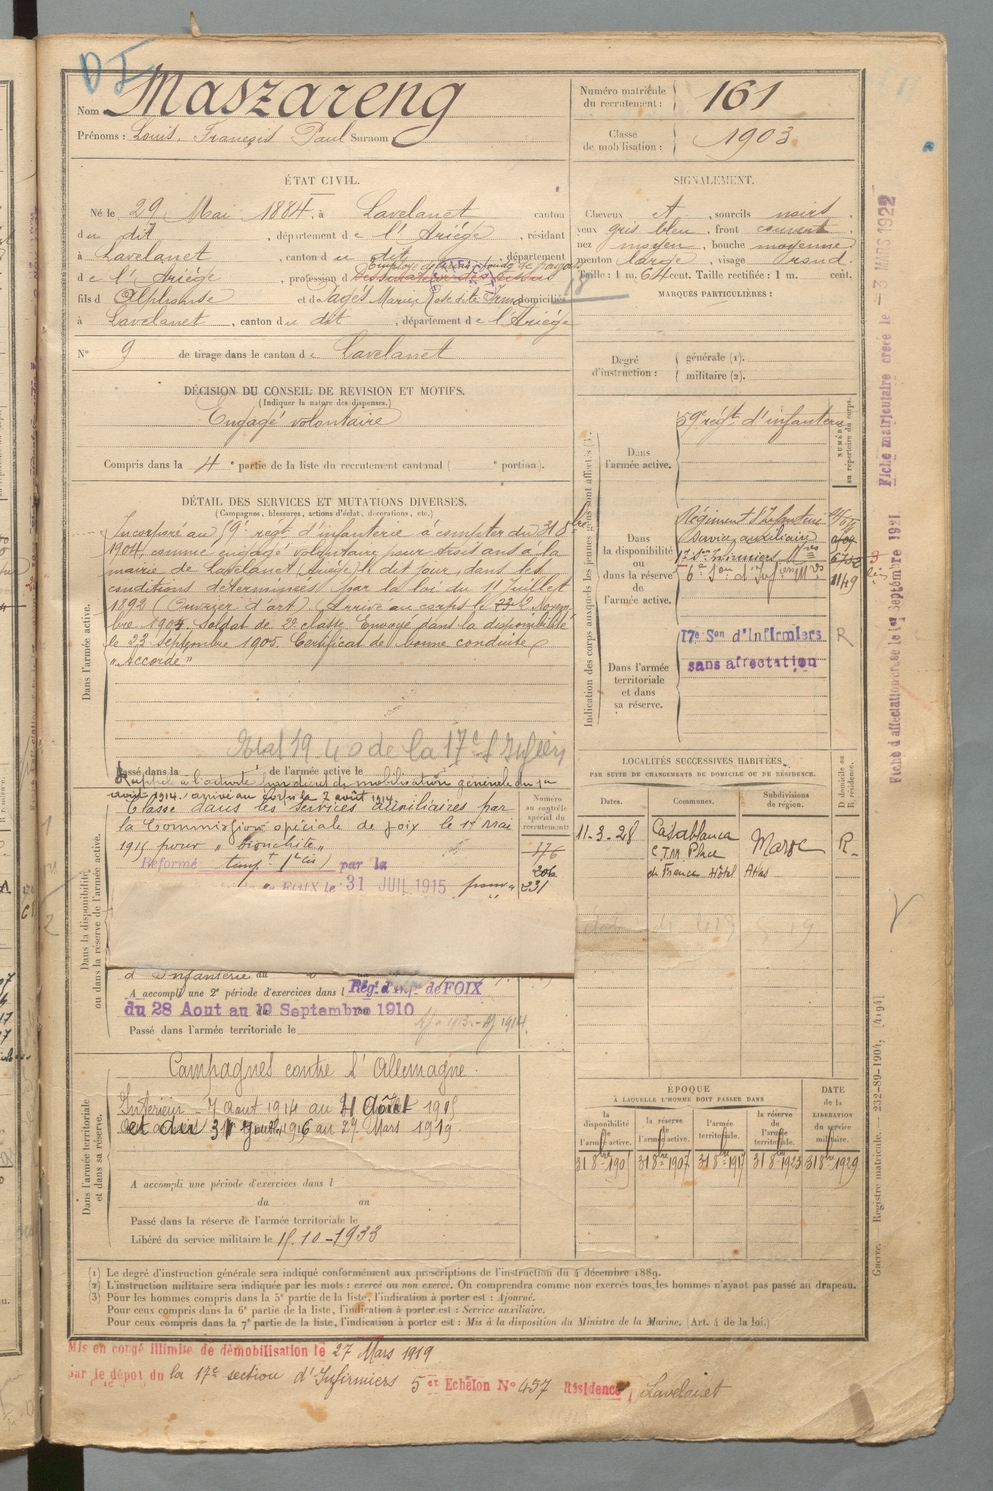 Nom Maszareng
Prénoms : Louis François Paul Surnom
Numéro matricule du recrutement : 161
Classe de mobilisation : 1903
ÉTAT CIVIL.
Né le 29 Mai 1884, à Lavelanet canton
du dit, département de l'Ariège, résidant
à Lavelanet, canton du dit, département
de l'Ariège, profession d
fils d Alphonse et de Pagès Marie Rose domiciliés
à Lavelanet, canton du dit, département de l'Ariège
N° 9 de tirage dans le canton de Lavelanet
SIGNALEMENT.
Cheveux et, sourcils noirs,
yeux gris bleu, front couvert,
nez moyen, bouche moyenne,
menton large, visage rond.
Taille : 1 m. 64 cent. Taille rectifiée : 1 m. cent.
MARQUES PARTICULIÈRES :
Degré d'instruction : générale (1).
militaire (2).
DÉCISION DU CONSEIL DE REVISION ET MOTIFS.
(Indiquer la nature des dispenses.)
Engagé volontaire
Compris dans la 4e partie de la liste du recrutement cantonal ( e portion).
DÉTAIL DES SERVICES ET MUTATIONS DIVERSES.
(Campagnes, blessures, actions d'éclat, décorations, etc.)
Dans l'armée active.
Incorporé au 59e régt d'infanterie à compter du 31 8bre
1904, comme engagé volontaire pour trois ans à la
mairie de Lavelanet (Ariège) le dit jour, dans les
conditions déterminées par la loi du 11 Juillet
1892 (Ouvrier d'art). Arrivé au corps le 2 Novem-
bre 1904. Soldat de 2e classe. Envoyé dans la disponibilité
le 23 septembre 1905. Certificat de bonne conduite
"Accordé"
de la 17e S Infirm
Passé dans la de l'armée active le
Rappelé à l'activité par décret de mobilisation générale du 1er
août 1914. arrivé au corps le 7 août 1914.
Dans la disponibilité ou dans la réserve de l'armée active.
Classé dans les services auxiliaires par
la Commission spéciale de foix le 17 Mai
1915 pour "bronchite"
Réformé temp t 1 par la
FOIX le 31 JUIL 1915 pour
Numéro au contrôle spécial du recrutement
176
206
231
d'Infanterie du
A accompli une 2e période d'exercices dans l Régt d'Infie de FOIX
du 28 Aout au 19 Septembre 1910
Passé dans l'armée territoriale le
Dans l'armée territoriale et dans sa réserve.
Campagnes contre l'Allemagne
Intérieur 7 août 1914 au 1915
et du 31 Juillet 1916 au 27 Mars 1919
A accompli une période d'exercices dans l
du au
Passé dans la réserve de l'armée territoriale le
Libéré du service militaire le 15.10-1933
Indication des corps auxquels les jeunes gens sont affectés (3).
NUMÉRO au répertoire du corps.
Dans l'armée active.
59e régt d'infanterie
Dans la disponibilité ou dans la réserve de l'armée active.
Régiment d'Infanterie
Service auxiliaire
6e Son d'Infirmiers Mres
1149
Dans l'armée territoriale et dans sa réserve.
17e Son d'Infirmiers R
sans affectation
LOCALITÉS SUCCESSIVES HABITÉES
PAR SUITE DE CHANGEMENTS DE DOMICILE OU DE RÉSIDENCE.
Dates. Communes. Subdivisions de région. D. domicile ou R. résidence.
11-3-28 Casablanca Maroc R.
C.T.M. Place
de France Hôtel Atlas
ÉPOQUE
À LAQUELLE L'HOMME DOIT PASSER DANS
la disponibilité de l'armée active.
la réserve de l'armée active.
l'armée territoriale.
la réserve de l'armée territoriale.
DATE de la LIBÉRATION du service militaire.
31 8bre 1905 31 8bre 1907 31 8bre 1917 31 8bre 1923 31 8bre 1929
(1) Le degré d'instruction générale sera indiqué conformément aux prescriptions de l'instruction du 4 décembre 1889.
(2) L'instruction militaire sera indiquée par les mots : exercé ou non exercé. On comprendra comme non exercés tous les hommes n'ayant pas passé au drapeau.
(3) Pour les hommes compris dans la 5e partie de la liste, l'indication à porter est : Ajourné.
Pour ceux compris dans la 6e partie de la liste, l'indication à porter est : Service auxiliaire.
Pour ceux compris dans la 7e partie de la liste, l'indication à porter est : Mis à la disposition du Ministre de la Marine. (Art. 4 de la loi.)
Mis en congé illimité de démobilisation le 27 Mars 1919
par le dépôt du la 17e section d'Infirmiers 5e Echelon N° 457 Résidence Lavelanet
Fiche matriculaire créée le -3 MARS 1922
Fiche d'affectation créée le 1er Septembre 1921
Guerre. Registre matricule. — 232-89-1904. [4194]